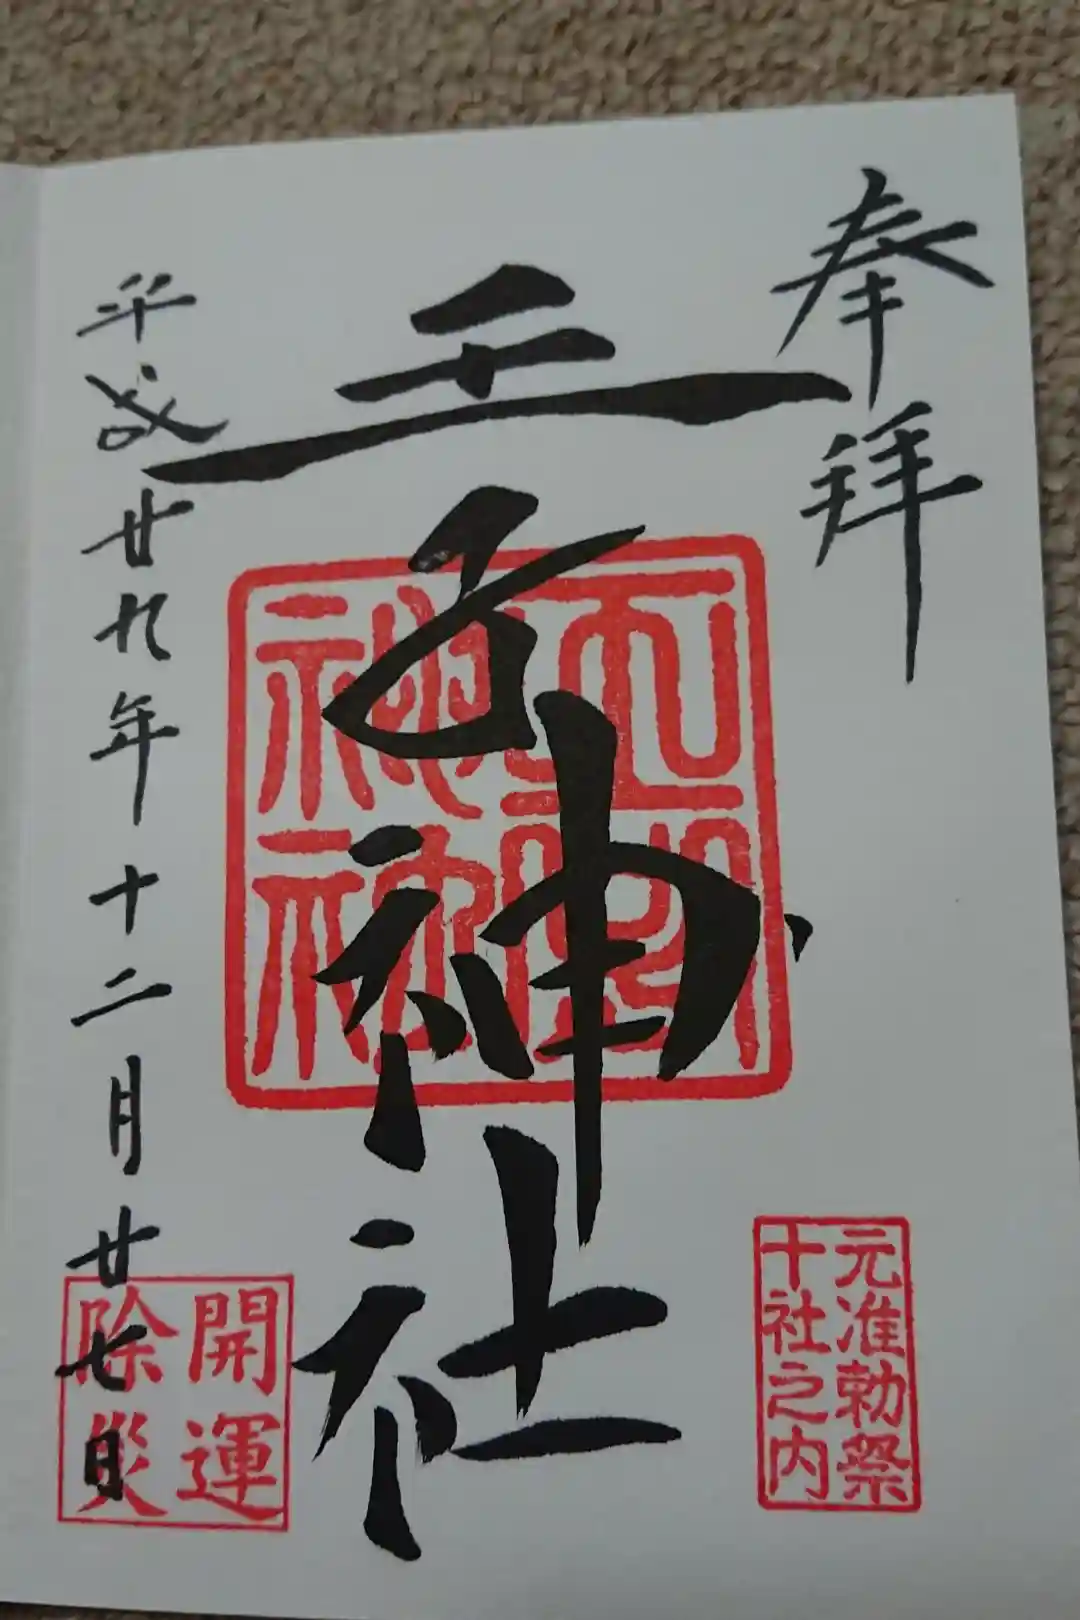 奉拝
王子神社
平成廿九年十二月廿七日
元准勅祭
十社之内
開運
除災
神社